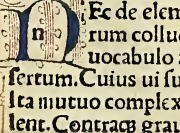 n Ec de elem
rum colluc
uocabulo a
sertum. Cuius ui su
Ita mutuo complex
lent. Contraq; grau